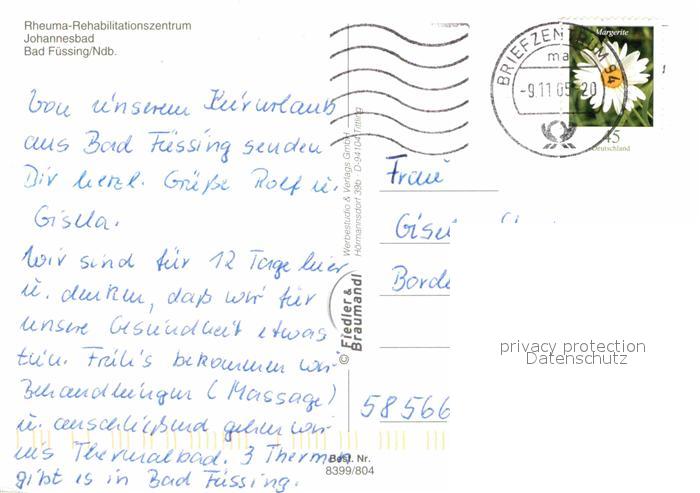 Rheuma-Rehabilitationszentrum
Johannesbad
Bad Füssing/Ndb.
Von unserem Kururlaub
aus Bad Füssing senden
Dir herzl. Grüße Rolf u.
Gisela.
Wir sind für 12 Tage hier
u. denken, daß wir für
unsere Gesundheit etwas
tun. Früh's bekommen wir
Behandlungen (Massage)
u. anschließend gehen wir
ins Thermalbad. 3 Thermen
gibt es in Bad Füssing.
Werbestudio & Verlags GmbH
Hörmannsdorf 39b · D-94104 Tittling
© Fiedler &
Braumandl
Best. Nr.
8399/804
BRIEFZENTRUM 94
ma
-9.11.05-20
Margerite
45
Deutschland
Frau
Gisel
Borde
58566
privacy protection
Datenschutz